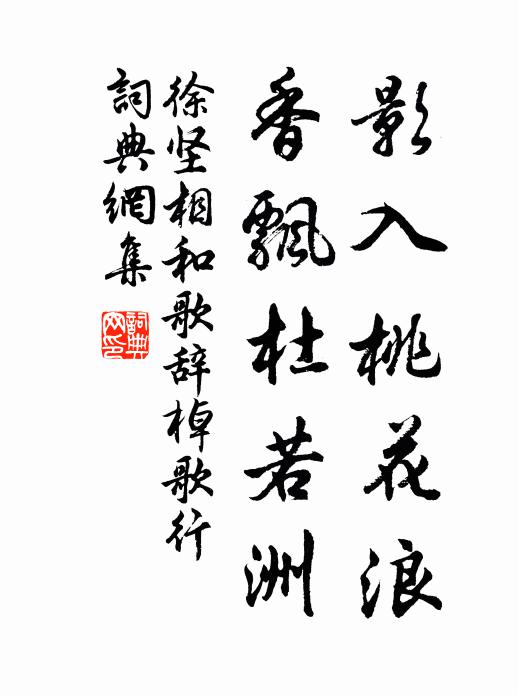 影入桃花浪
香飄杜若洲
徐坚相和歌辞棹歌行
詞典網集
詞典网印